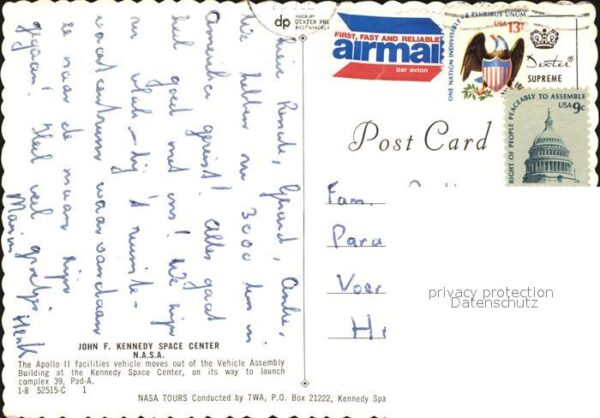 dp
MADE BY
DEXTER PRE
WEST NYACK,
FIRST, FAST AND RELIABLE
airmail
par avion
E PLURIBUS UNUM
USA 13c
ONE NATION INDIVISIBLE
Dexter
SUPREME
RIGHT OF PEOPLE PEACEABLY TO ASSEMBLE
USA 9c
Post Card
Fam.
Para
Voer
privacy protection
Datenschutz
Gerard,
We hebben nu 3000 km in
Amerika gereisd! Alles gaat
heel goed met ons! We zijn
nu vlak bij 't ruimte-
vaartcentrum waar vandaan
ze naar de maan zijn
gegaan! Heel veel groetjes
Henk
JOHN F. KENNEDY SPACE CENTER
N.A.S.A.
The Apollo II facilities vehicle moves out of the Vehicle Assembly
Building at the Kennedy Space Center, on its way to launch
complex 39, Pad-A.
1-8 52515-C 1
NASA TOURS Conducted by TWA, P.O. Box 21222, Kennedy Spa